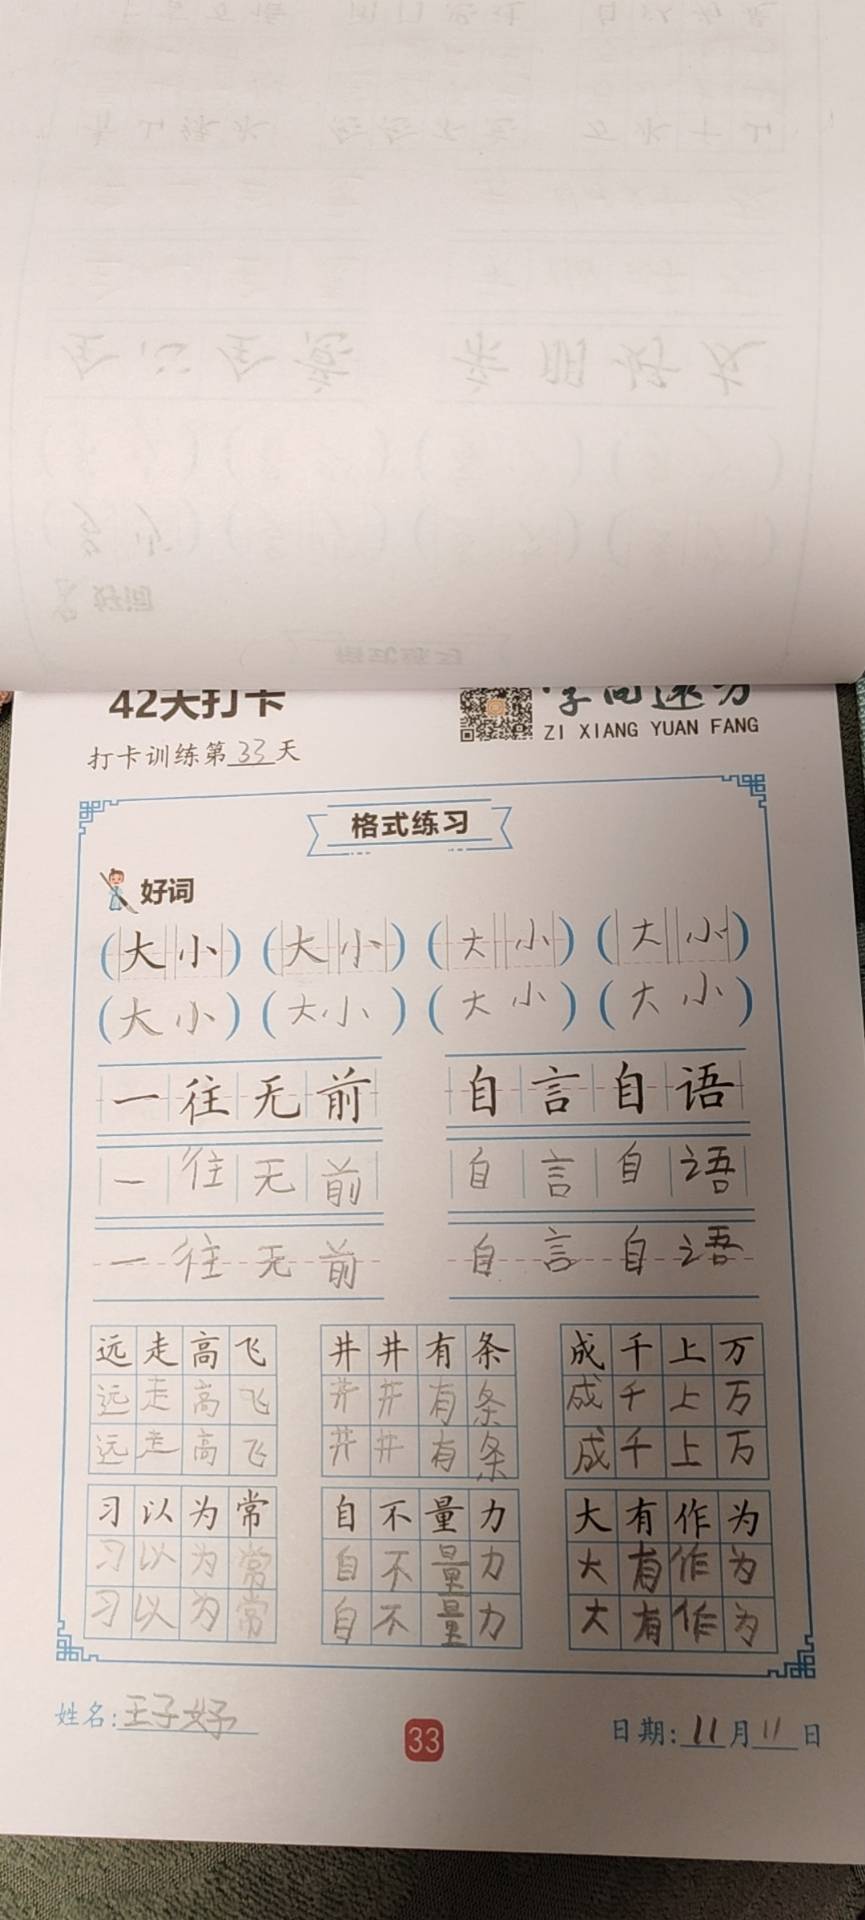 42天打卡
字向远方
ZI XIANG YUAN FANG
打卡训练第33天
格式练习
好词
(大小) (大小) (大小) (大小)
(大小) (大小) (大小) (大小)
一往无前 自言自语
一往无前 自言自语
一往无前 自言自语
远走高飞 井井有条 成千上万
远走高飞 井井有条 成千上万
远走高飞 井井有条 成千上万
习以为常 自不量力 大有作为
习以为常 自不量力 大有作为
习以为常 自不量力 大有作为
姓名:王子好 33 日期:11月11日